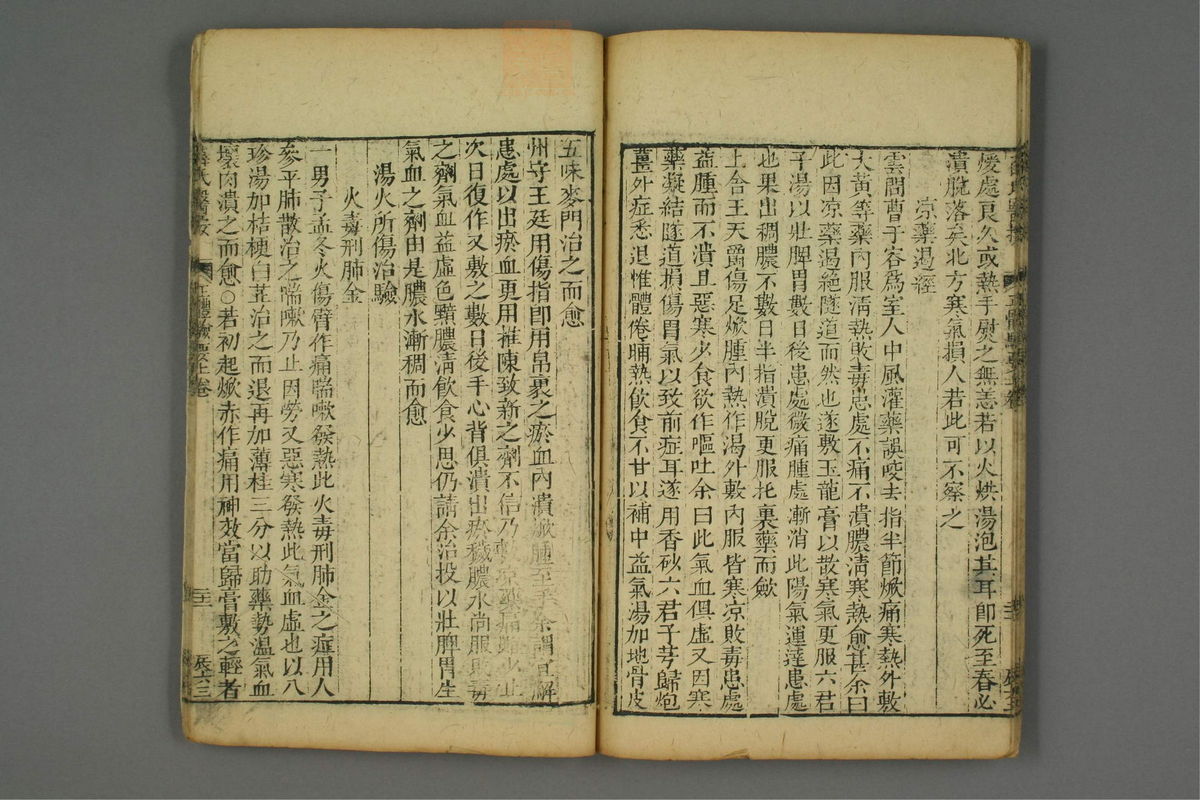 煖處良久或熱手熨之無恙若以火烘湯泡其耳卽死至春必
潰脫落矣北方寒氣損人若此可不察之
凉藥遏經
雲間曹于容爲室人中風灌藥誤咬去指半節焮痛寒熱外敷
大黃等藥內服淸熱敗毒患處不痛不潰膿淸寒熱愈甚余曰
此因凉藥遏絕隧道而然也遂敷玉龍膏以散寒氣更服六君
子湯以壯脾胃數日後患處微痛腫處漸消此陽氣運達患處
也果出稠膿不數日半指潰脫更服托裏藥而斂
上舍王天爵傷足焮腫內熱作渴外敷內服皆寒凉敗毒患處
益腫而不潰且惡寒少食欲作嘔吐余曰此氣血俱虛又因寒
藥凝結隧道損傷胃氣以致前症耳遂用香砂六君子芎歸炮
薑外症悉退惟體倦晡熱飮食不甘以補中益氣湯加地骨皮
五味麥門治之而愈
州守王廷用傷指卽用帛裹之瘀血內潰焮腫至手余謂宜解
患處以出瘀血更用推陳致新之劑不信乃敷凉藥痛雖少止
次日復作又敷之數日後手心背俱潰出瘀穢膿水尙服敗毒
之劑氣血益虛色黯膿淸飮食少思仍請余治投以壯脾胃生
氣血之劑由是膿水漸稠而愈
湯火所傷治驗
火毒刑肺金
一男子孟冬火傷臂作痛喘嗽發熱此火毒刑肺金之症用人
參平肺散治之喘嗽乃止因勞又惡寒發熱此氣血虛也以八
珍湯加桔梗白芷治之而退再加薄桂三分以助藥勢溫氣血
壞肉潰之而愈○若初起焮赤作痛用神效當歸膏敷之輕者
薛氏醫按
正體類要上卷
辰六三